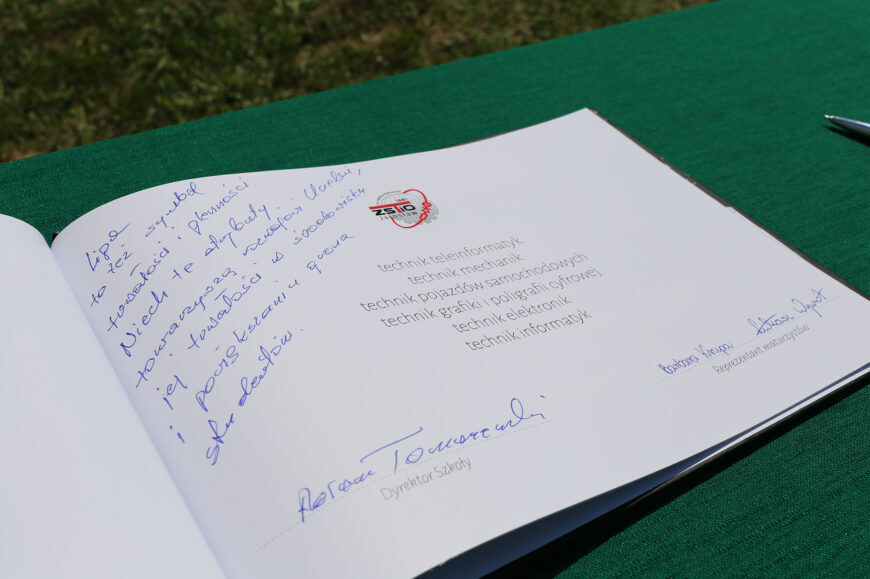 Lipa
to też symbol
trwałości i płenności.
Niech te atrybuty
towarzyszą rozwojowi Uczelni,
jej trwałości w środowisku
i powiększaniu grona
studentów.
1951
ZSTiO
JAROSŁAW
technik teleinformatyk
technik mechanik
technik pojazdów samochodowych
technik grafiki i poligrafii cyfrowej
technik elektronik
technik informatyk
Barbara Krupa
Reprezentant maturzystów
Adam Tomaszewski
Dyrektor Szkoły